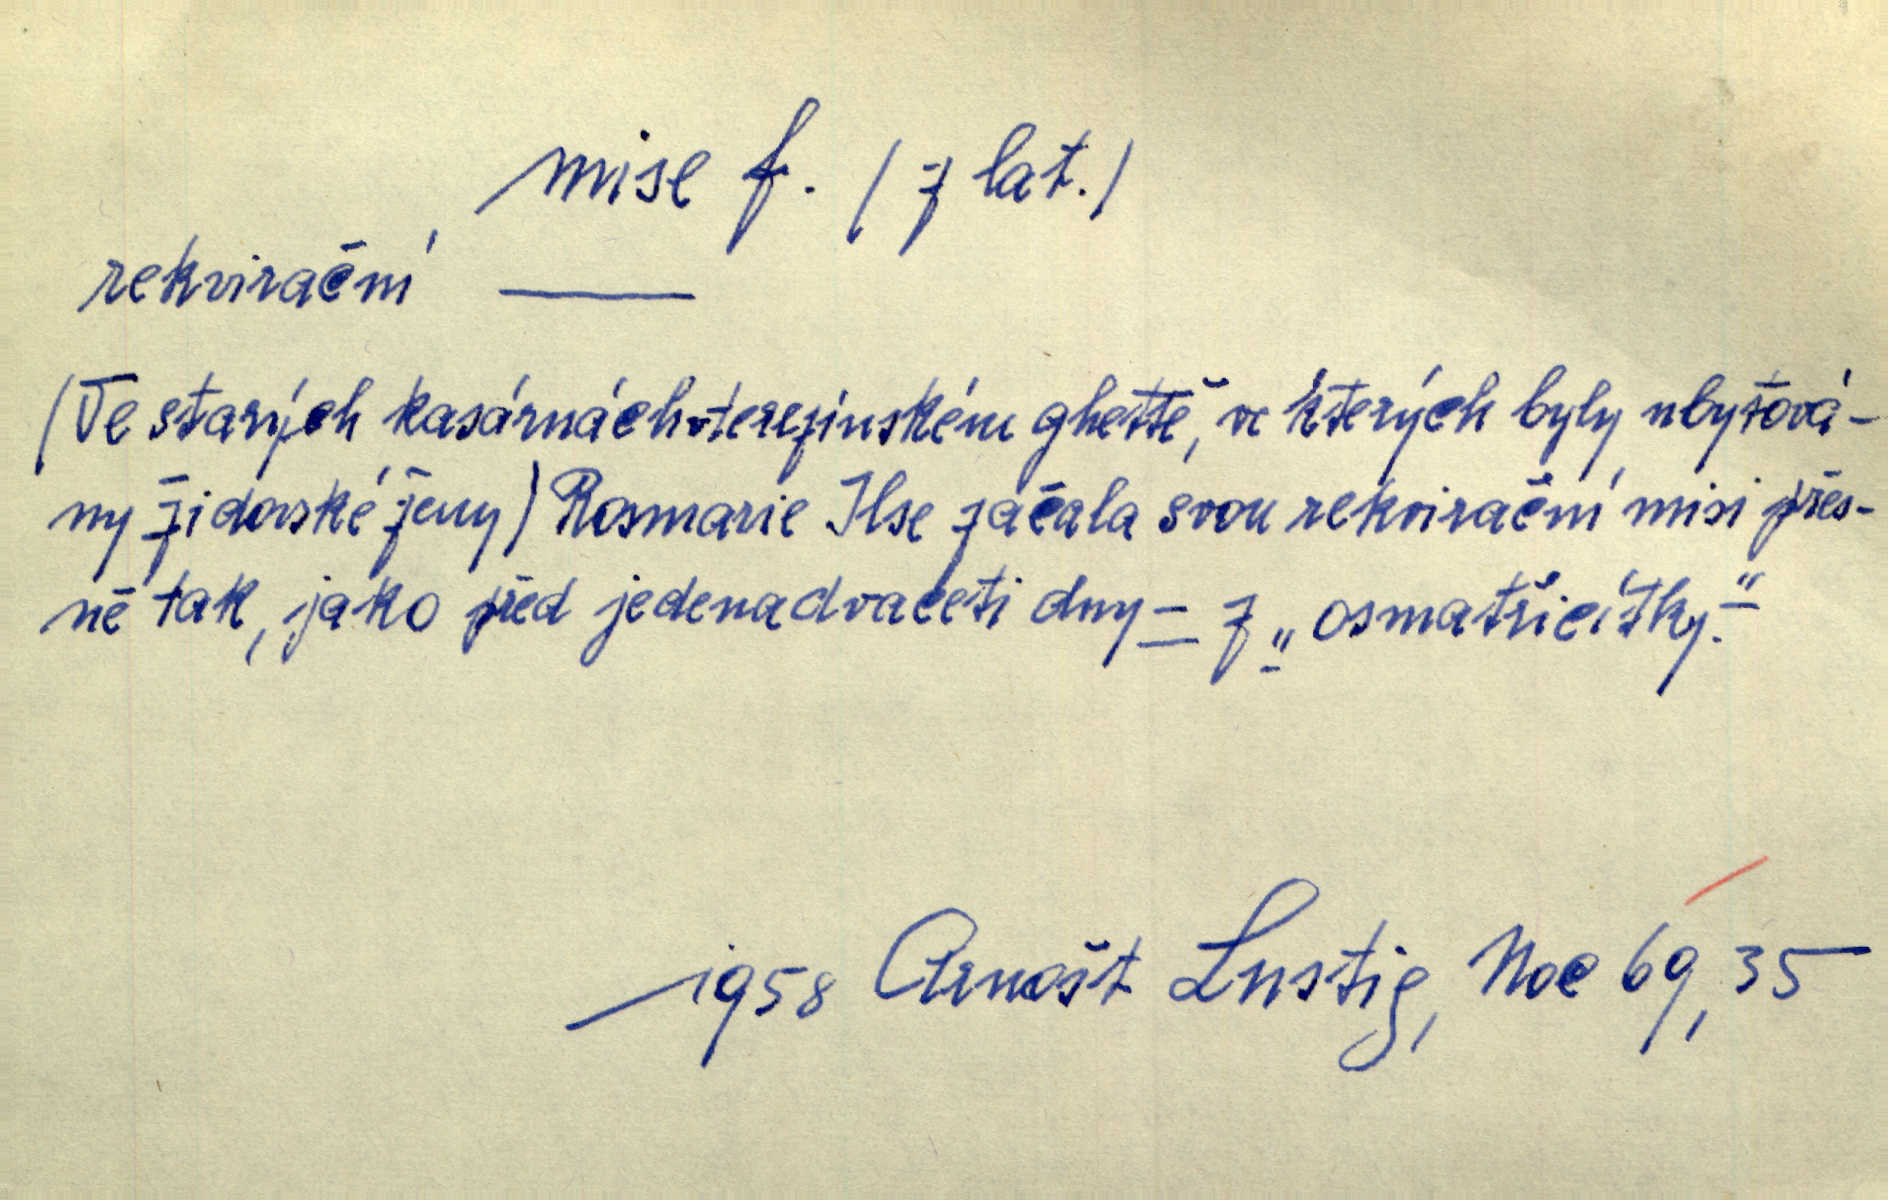 mise f. (z lat.)
rekvirační ———
(Ve starých kasárnách v terezínském ghettě, ve kterých byly ubytová-
ny židovské ženy) Rosmarie Ilse začala svou rekvirační misi přes-
ně tak, jako před jedenadvaceti dny – z „osmatřicítky.“
1958 Arnošt Lustig, Noc 69, 35